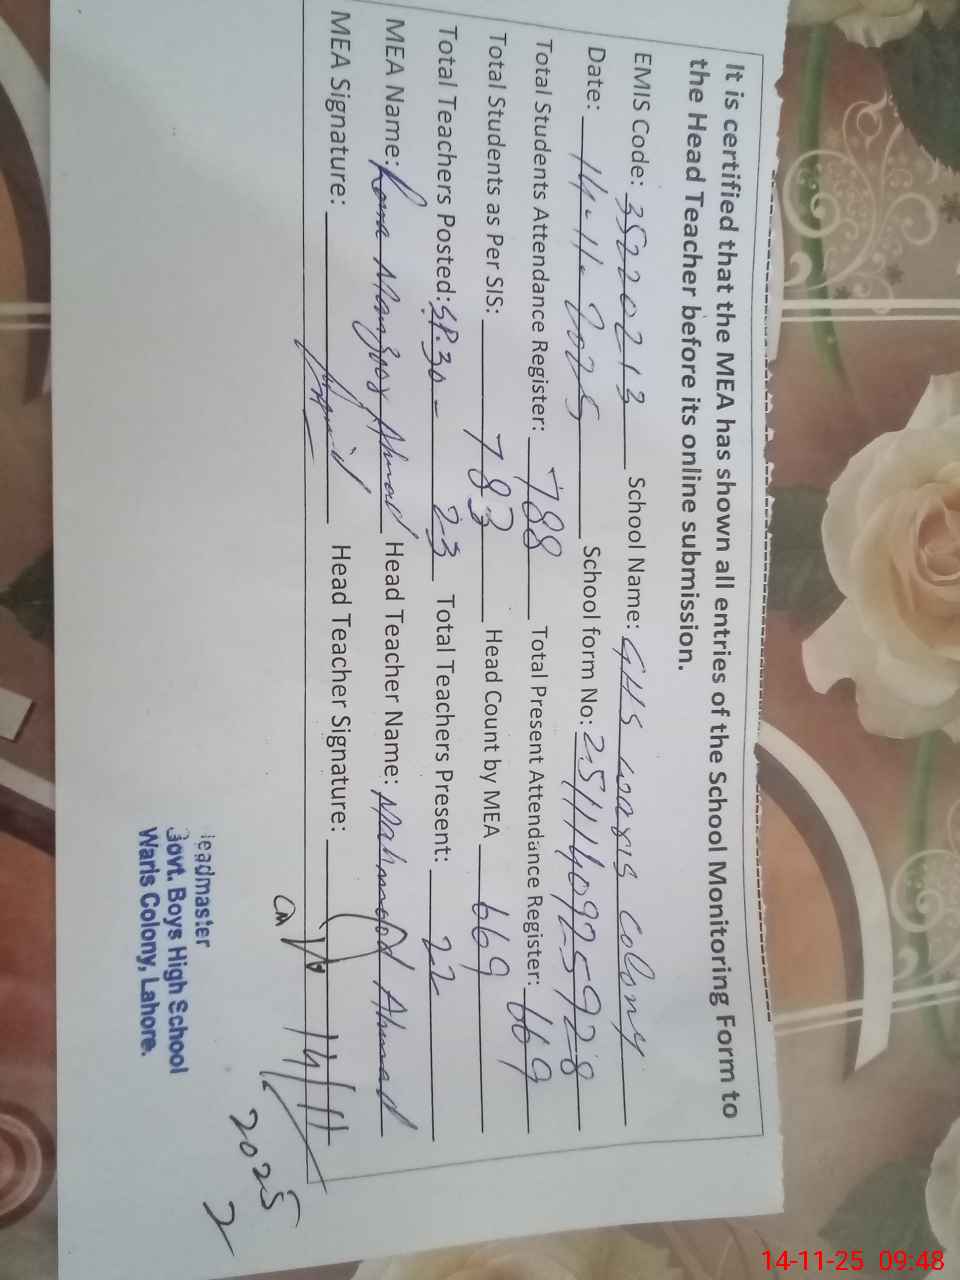 It is certified that the MEA has shown all entries of the School Monitoring Form to
the Head Teacher before its online submission.
EMIS Code: 35220213 School Name: GHS waris colony
Date: 14.11.2025 School form No: 2511140925928
Total Students Attendance Register: 788 Total Present Attendance Register: 669
Total Students as Per SIS: 783 Head Count by MEA 669
Total Teachers Posted: SP.30- 23 Total Teachers Present: 22
MEA Name: Rana Manzoor Ahmad Head Teacher Name: Mahmood Ahmad
MEA Signature: Head Teacher Signature: 14/11
2025
eadmaster
Govt. Boys High School
Waris Colony, Lahore.
14-11-25 09:48